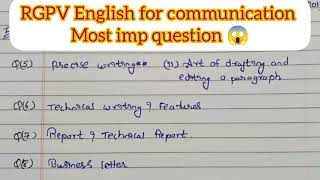 RGPV English for communication
Most imp question 😱
Q(5) Precise writing** (11) Art of drafting and
editing a paragraph
Q(6) Technical writing & Features
Q(7) Report & Technical Report.
Q(8) Business letter